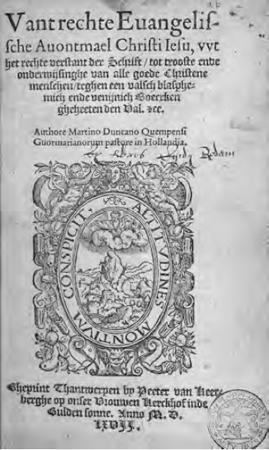 Vant rechte Euangelis-
sche Avontmael Christi Iesu, vvt
het rechte verstant der Schrift / tot trooste ende
onderwijsinghe van alle goede Christene
menschen / teghen een valsch blasphe-
mich ende venijnich Boecxken
gheheeten den Val. &c.
Authore Martino Duncano Quempensi
Guormarianorum pastore in Hollandia.
CONSPICIT, ALTITVDINES MONTIVM
Gheprint Thantwerpen by Peeter van Keer-
berghe op onser Vrouwen Kerckhof inde
Gulden sonne. Anno M. D.
LXVII.